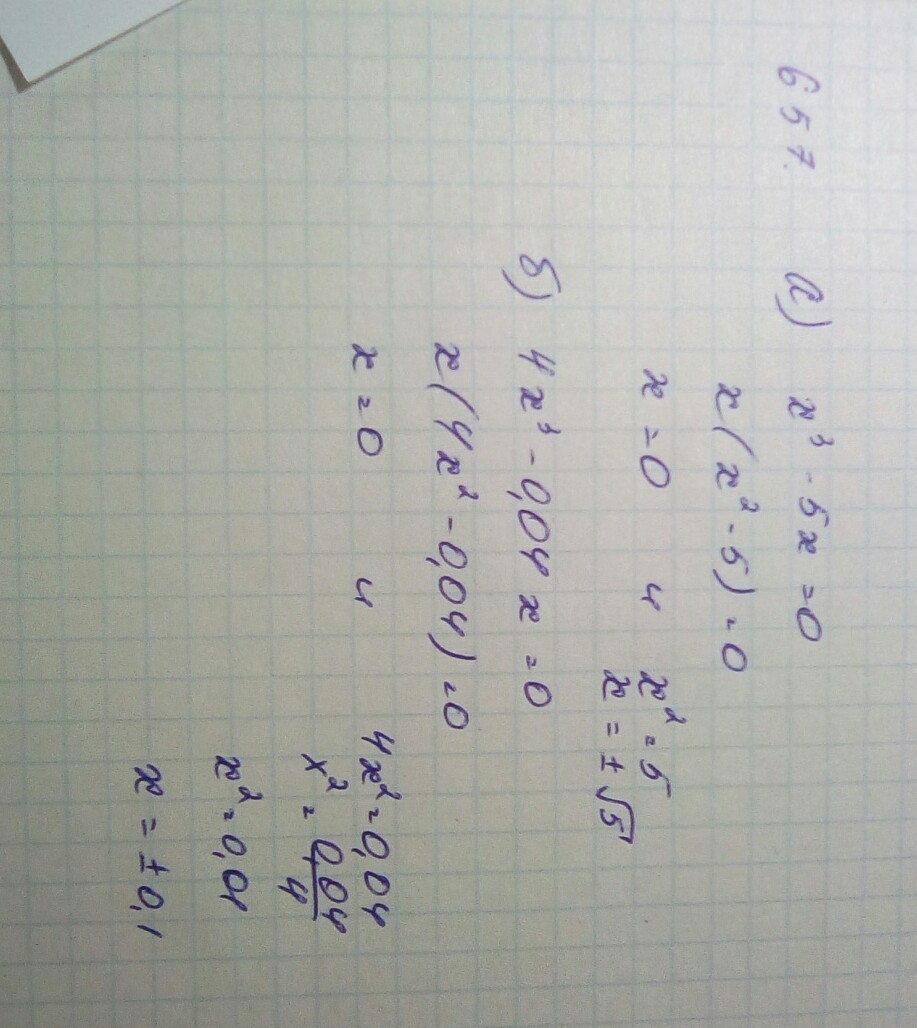 657. а) x³ - 5x = 0
x(x² - 5) = 0
x = 0 и x² = 5
x = ± √5
б) 4x³ - 0,04x = 0
x(4x² - 0,04) = 0
x = 0 и 4x² = 0,04
x² = 0,04/4
x² = 0,01
x = ± 0,1